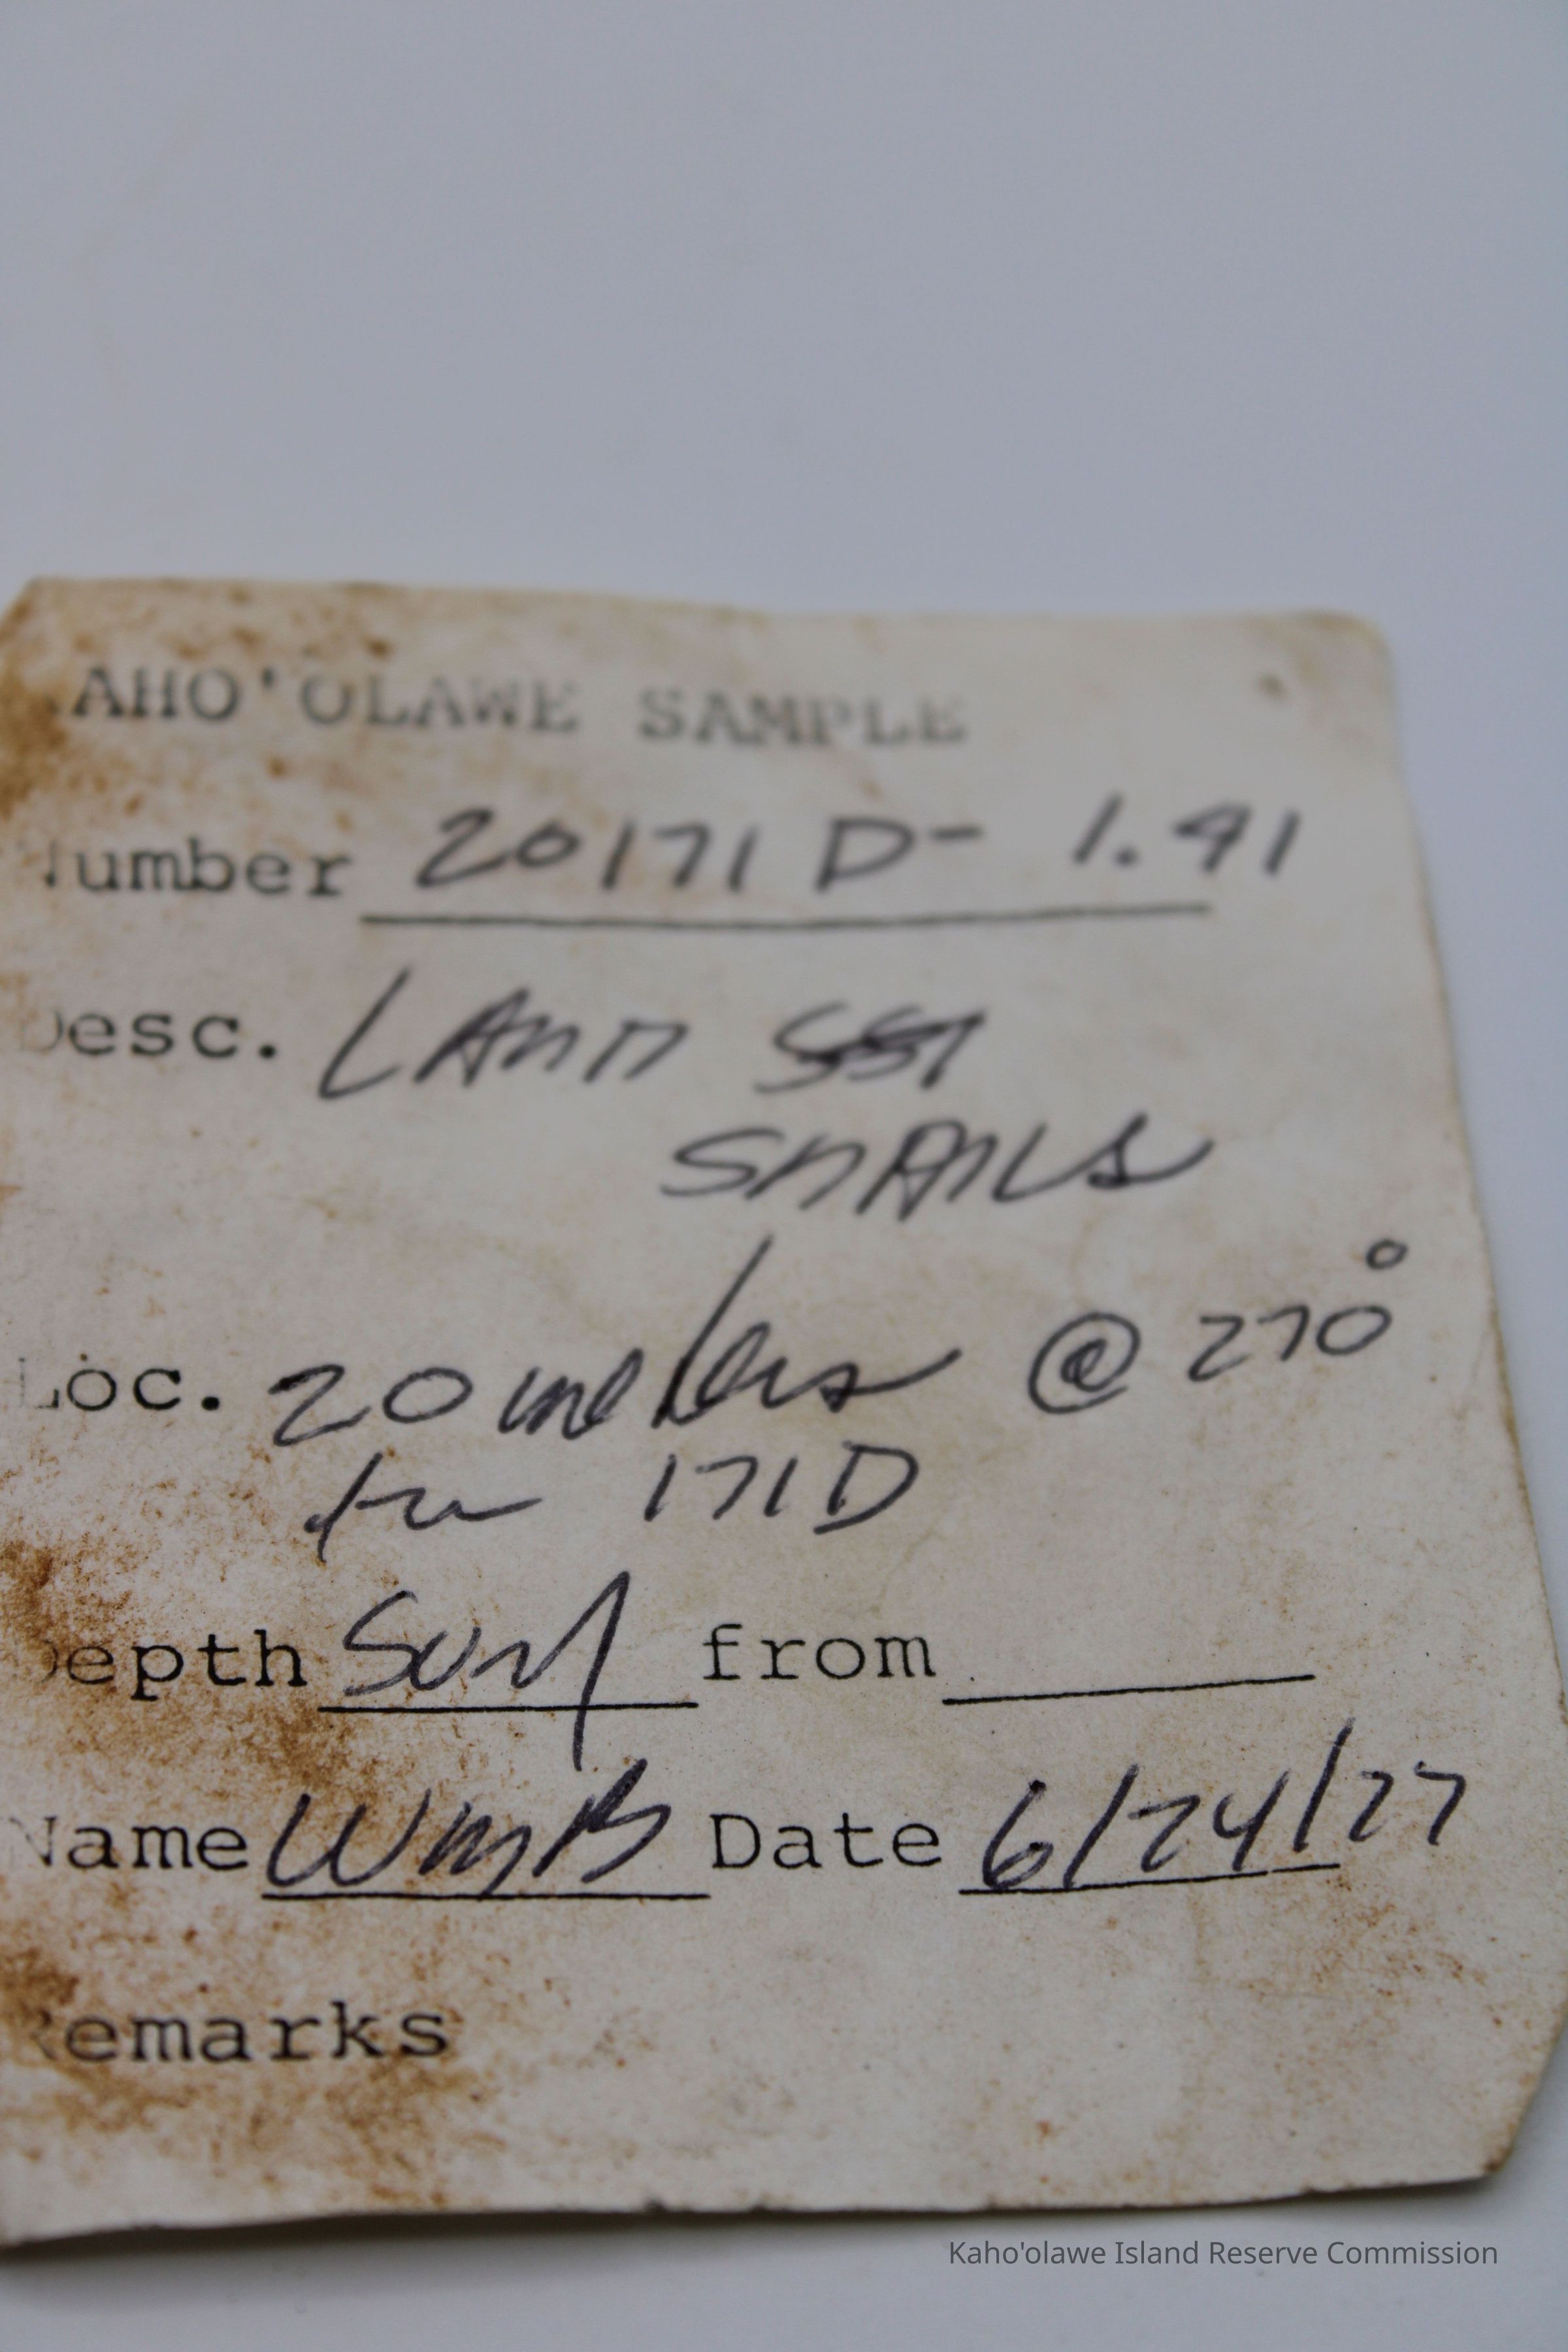 KAHO'OLAWE SAMPLE
Number 20171 D- 1.91
Desc. LAND
SNAILS
Loc. 20 meters @ 270°
fm 171D
Depth Surf from
Name WmB Date 6/24/77
Remarks
Kaho'olawe Island Reserve Commission